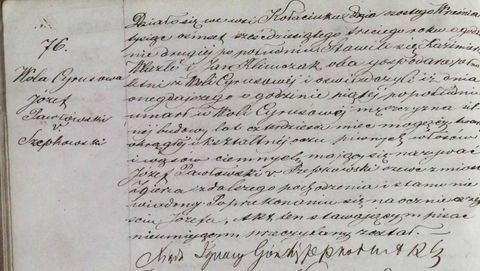 76.
Wola Cyrusowa
Józef
Pawłowski
v.
Szepkowski
Działo się we wsi Kołacinku dnia szóstego Września
tysiąc ośmset sześćdziesiątego trzeciego roku o godzi-
nie drugiej po południu. Stawili się Kazimierz
i Jan Klimczak oba gospodarze pół-
letni z Woli Cyrusowej i oświadczyli iż dnia
onegdajszego o godzinie piątej po południu
umarł w Woli Cyrusowej mężczyzna sil-
nej budowy lat czterdzieści mieć mogący, twarzy
okrągłej i kształtnej oczu piwnych, włosów
i wąsów ciemnych, mający się nazywać
Józef Pawłowski v. Szepkowski szewc z miasta
Zgierza z dalszego pochodzenia i stanu nie
wiadomy. Po przekonaniu się naocznie o zej-
ściu Józefa, Akt ten stawającym pisać
nieumiejącym przeczytany został.
Ignacy